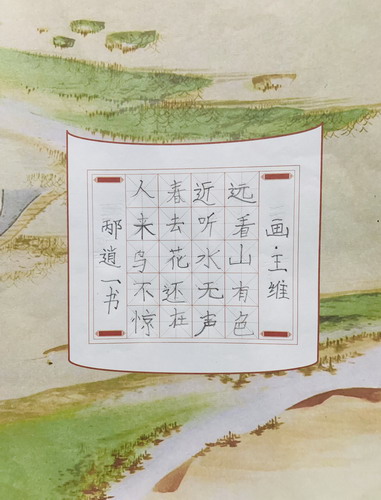 画·王维
远看山有色
近听水无声
春去花还在
人来鸟不惊
邴逍一书